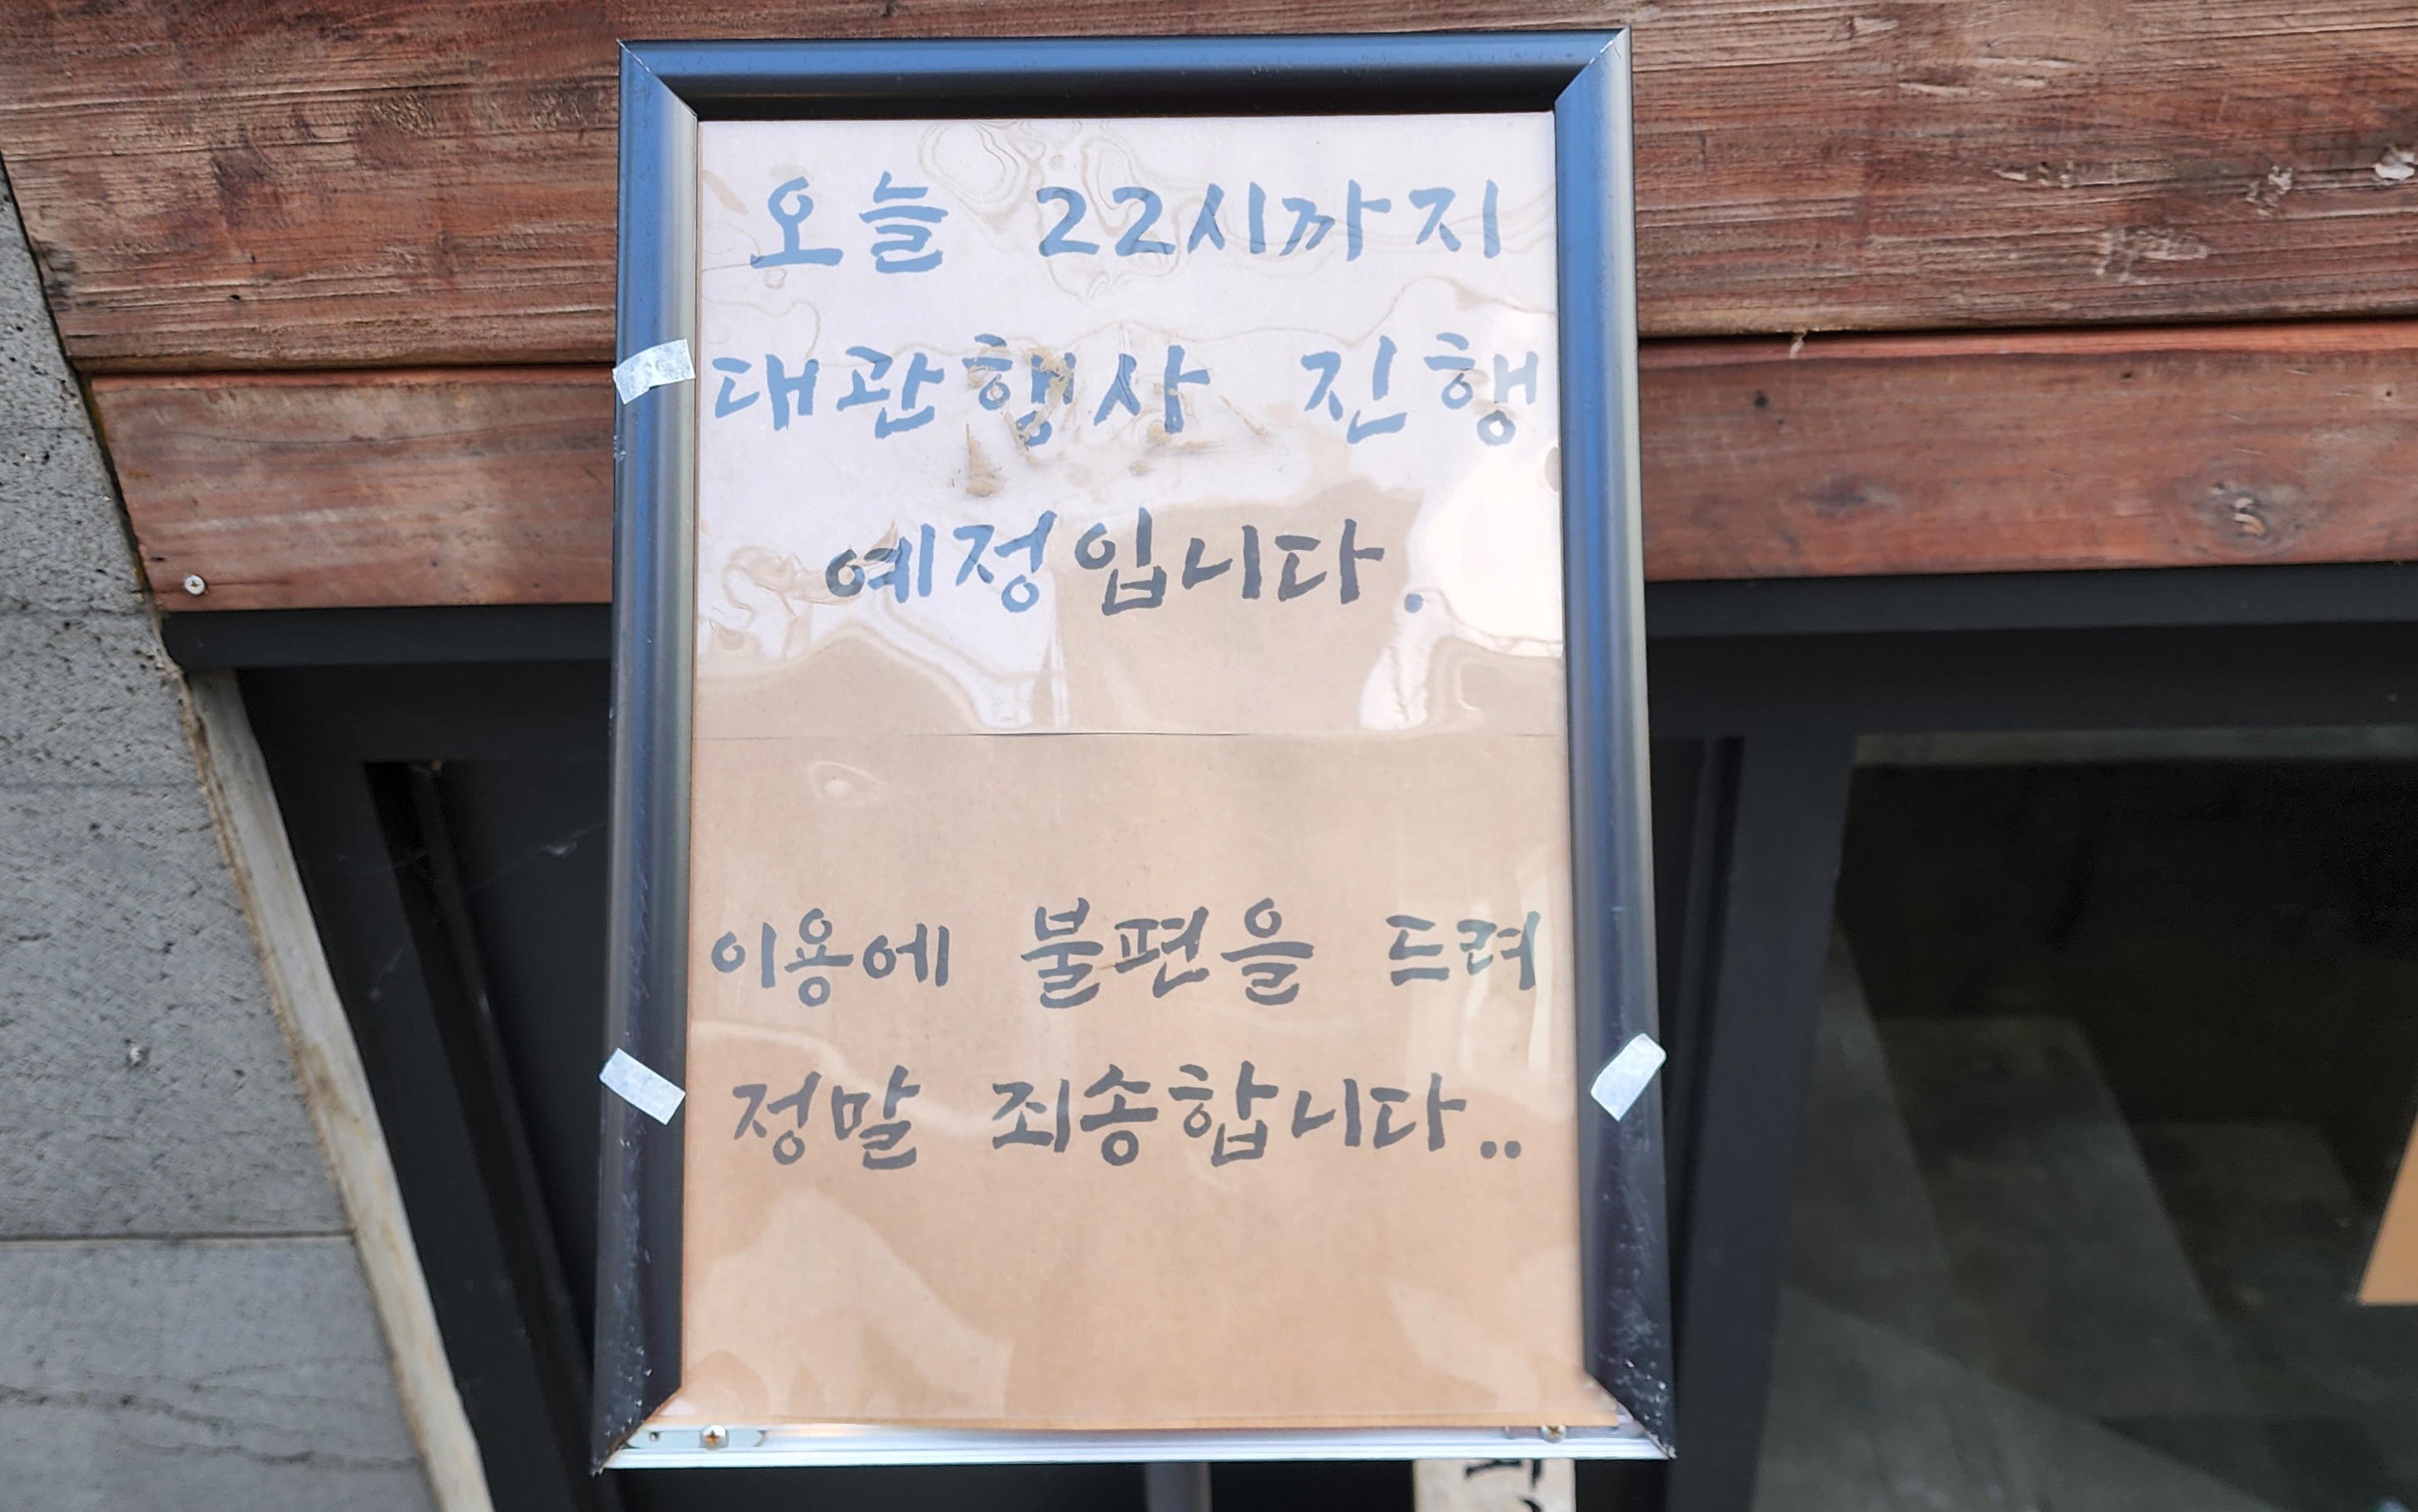 오늘 22시까지
대관행사 진행
예정입니다.
이용에 불편을 드려
정말 죄송합니다..